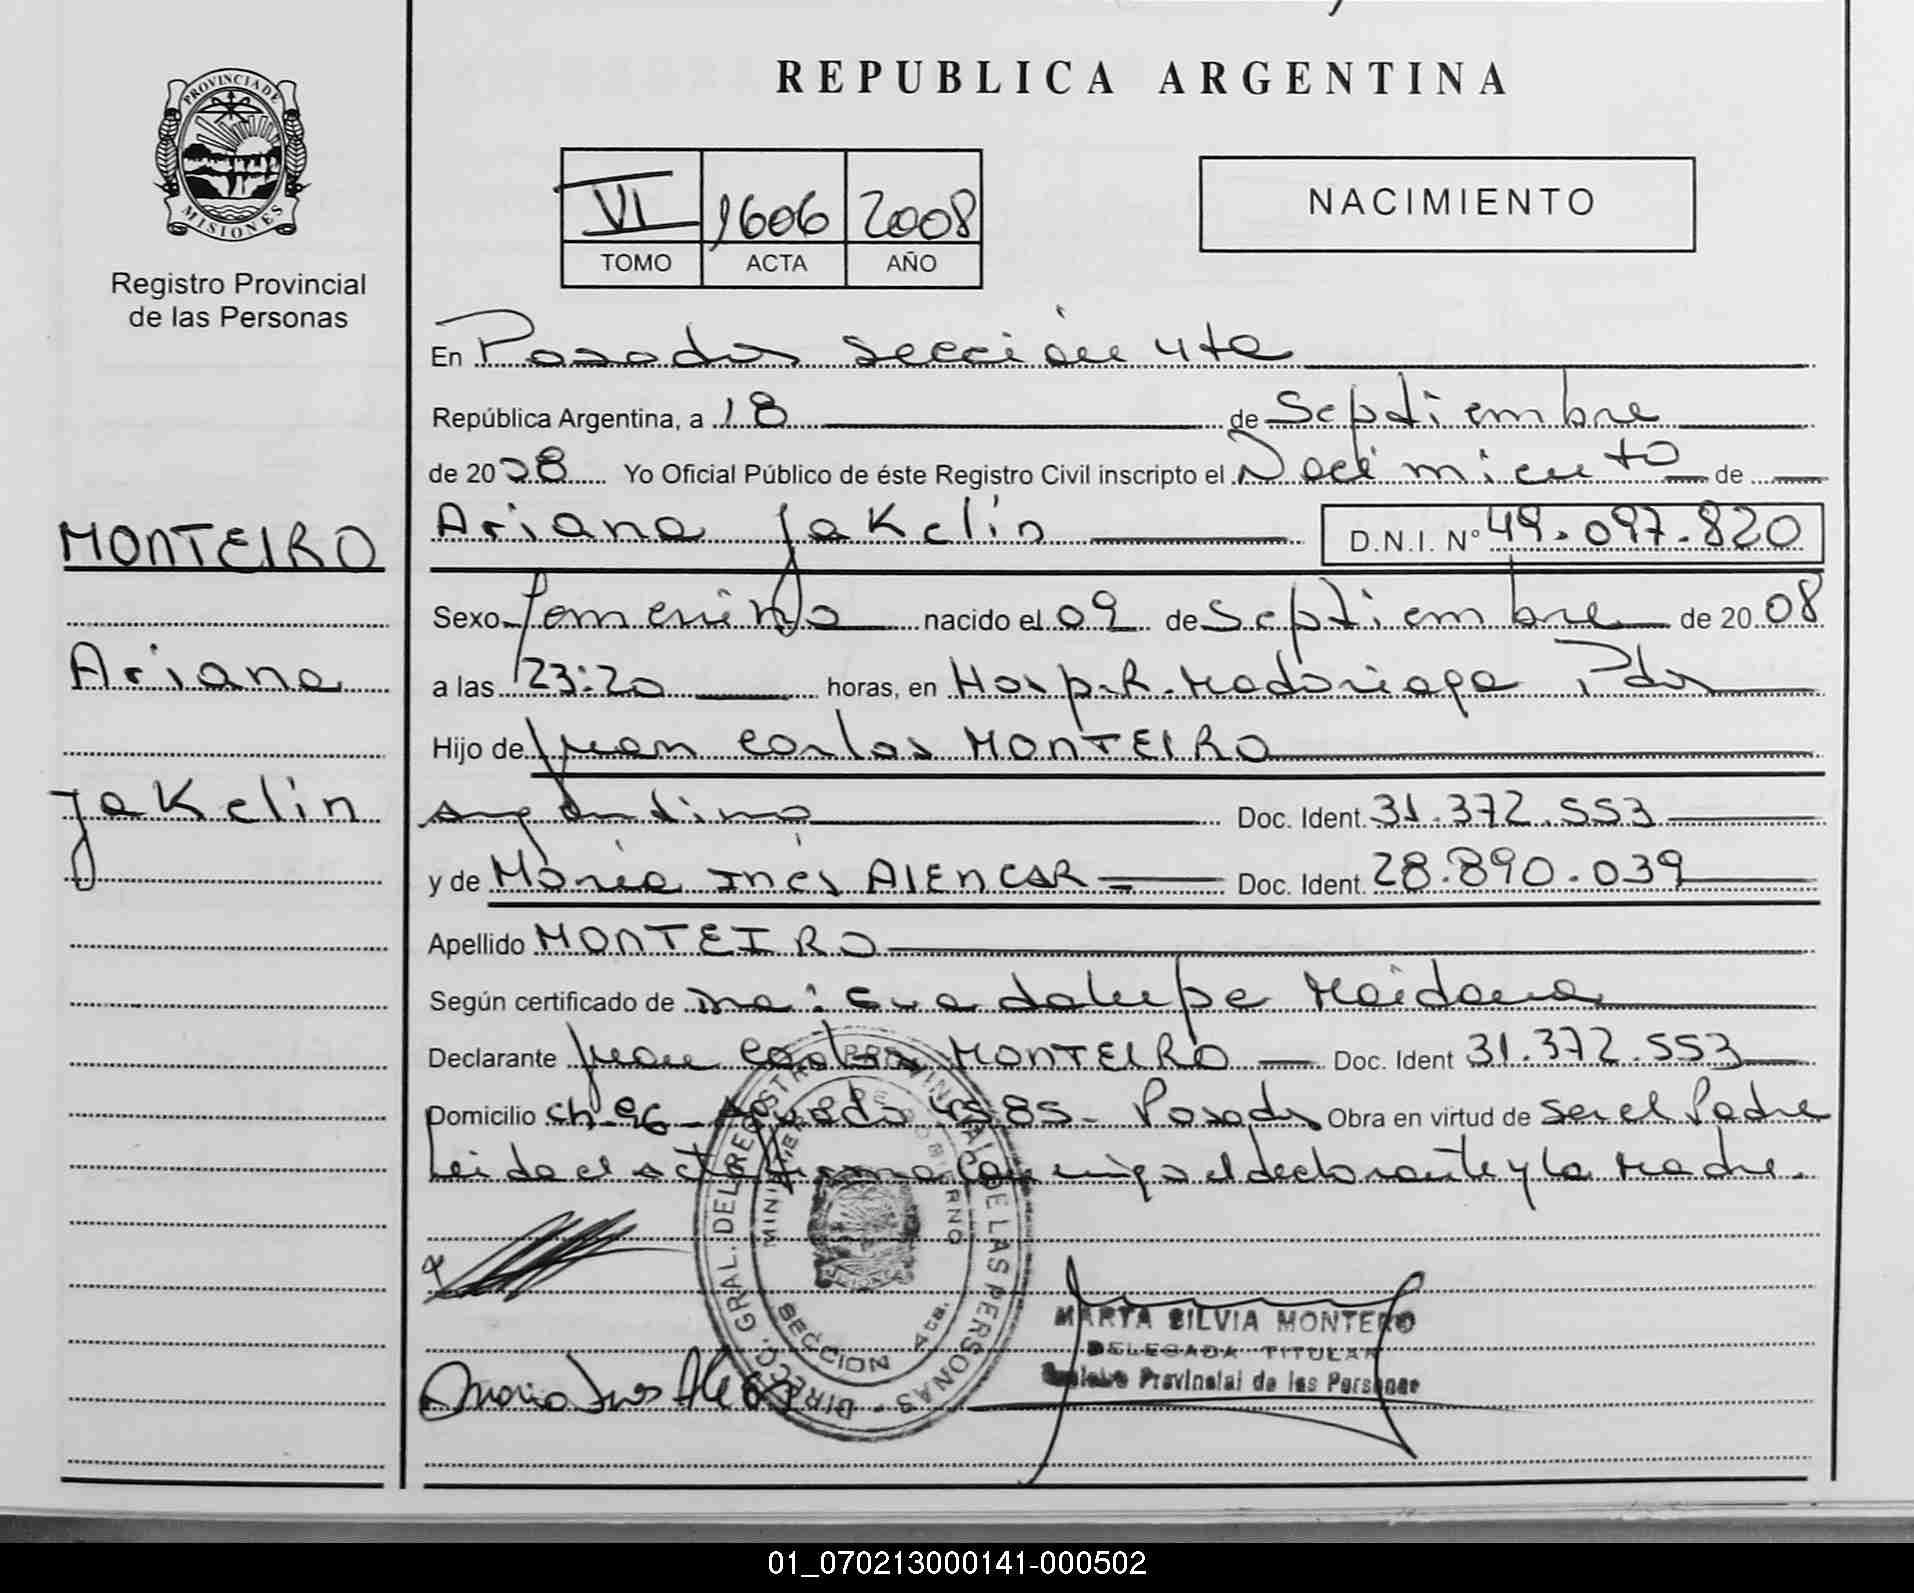 REPUBLICA ARGENTINA
PROVINCIA DE MISIONES
Registro Provincial
de las Personas
VI 1606 2008
TOMO ACTA AÑO
NACIMIENTO
MONTEIRO
Ariana
Jakelin
En Posadas Sección 4ta
República Argentina, a 18 de Septiembre
de 2008 Yo Oficial Público de éste Registro Civil inscripto el Nacimiento de
Ariana Jakelin D.N.I. N° 49.097.820
Sexo femenino nacido el 09 de Septiembre de 2008
a las 23:20 horas, en Hosp. R. Madariaga Pdas
Hijo de Juan Carlos MONTEIRO
argentino Doc. Ident. 31.372.553
y de María Inés ALENCAR Doc. Ident. 28.890.039
Apellido MONTEIRO
Según certificado de Guadalupe Maidana
Declarante Juan Carlos MONTEIRO Doc. Ident 31.372.553
Domicilio Ch. 96 - 4585 - Posadas Obra en virtud de Ser el Padre
Leida el acta firma con migo el declarante y la Madre.
DIRECC. GRAL. DEL REGISTRO PROVINCIAL DE LAS PERSONAS
MINISTERIO DE GOBIERNO
SECCION 4ta.
MARTA SILVIA MONTERO
DELEGADA TITULAR
Registro Provincial de las Personas
01_070213000141-000502